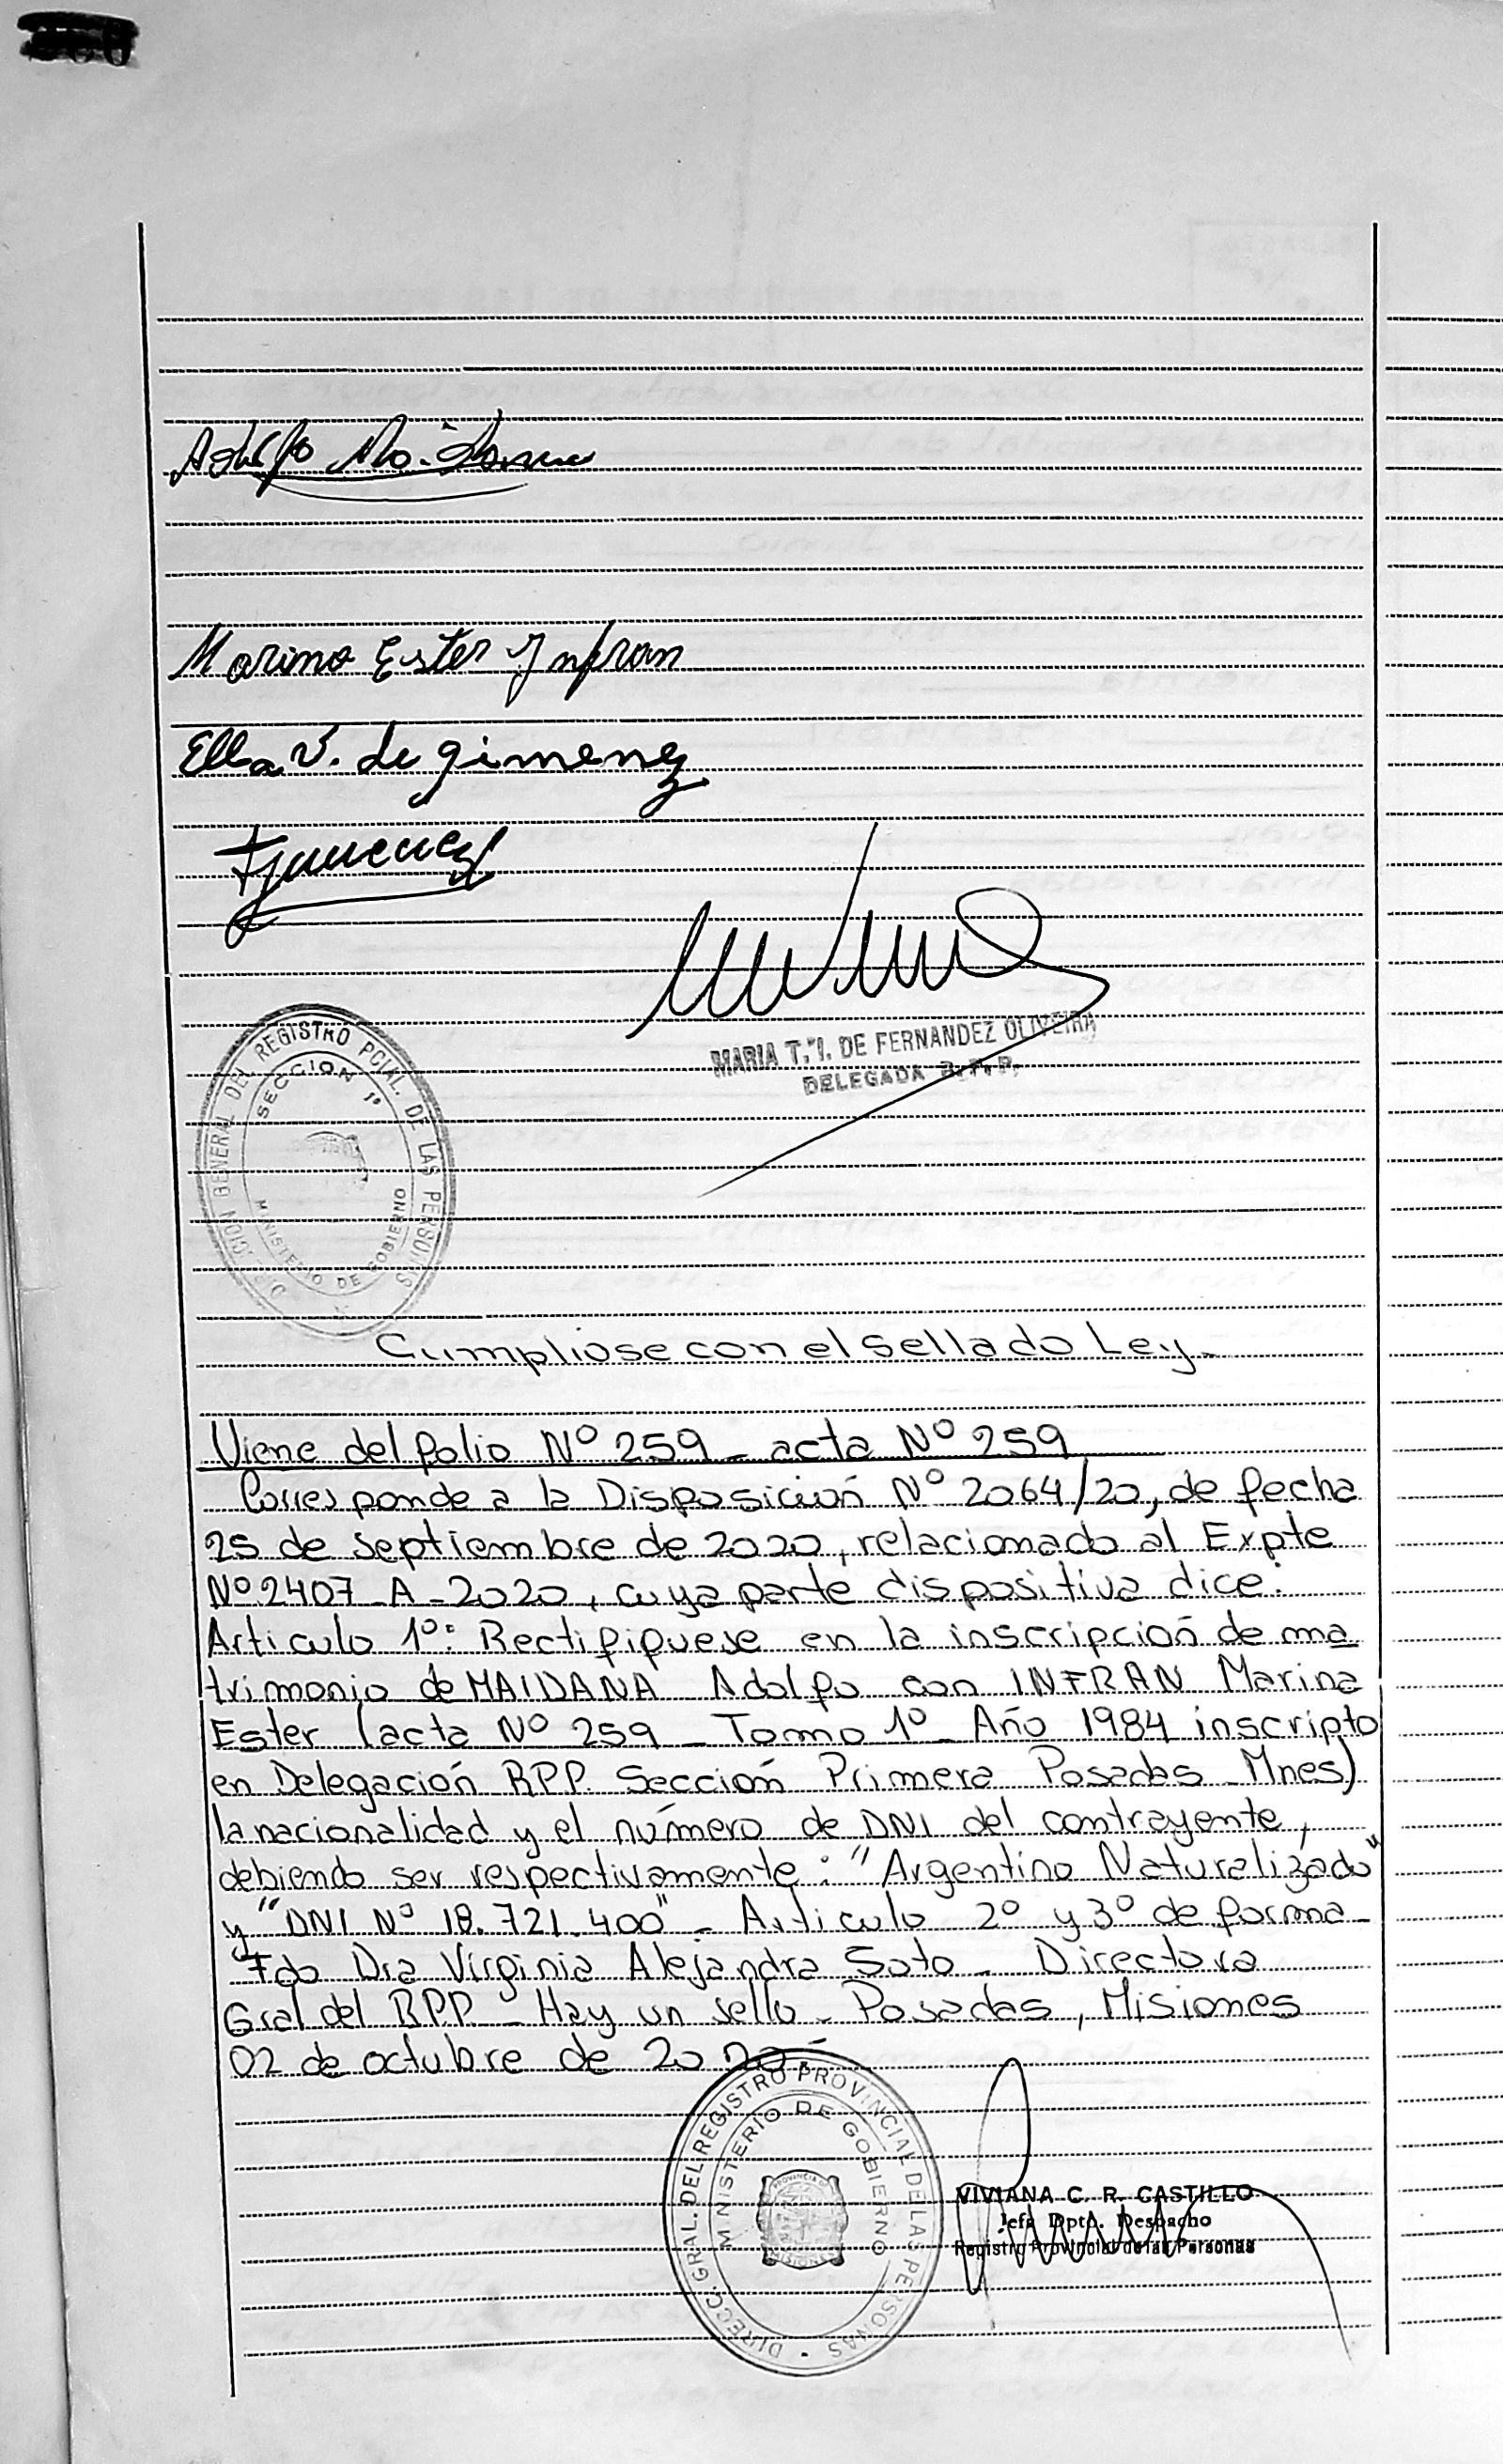 Adolfo Maidana
Marina Ester Ynfran
Ella V. de Gimenez
Gimenez
MARIA T. I. DE FERNANDEZ OLIVEIRA
DELEGADA R. P. P.
DIRECCION GENERAL DEL REGISTRO PCIAL. DE LAS PERSONAS
SECCION 1º
MINISTERIO DE GOBIERNO
Cumpliose con el sellado Ley.
Viene del folio Nº 259 - acta Nº 259
Corresponde a la Disposición Nº 2064/20, de fecha
25 de septiembre de 2020, relacionado al Expte
Nº 2407-A-2020, cuya parte dispositiva dice:
Articulo 1º: Rectifiquese en la inscripción de ma
trimonio de MAIDANA Adolfo con INFRAN Marina
Ester (acta Nº 259 - Tomo 1º - Año 1984 inscripto
en Delegación RPP. Sección Primera Posadas - Mnes)
la nacionalidad y el número de DNI del contrayente,
debiendo ser respectivamente: "Argentino Naturalizado"
y "DNI Nº 18.721.400" - Articulo 2º y 3º de forma -
Fdo Dra Virginia Alejandra Soto - Directora
Gral del RPP - Hay un sello - Posadas, Misiones
02 de octubre de 2020 -
DIRECC. GRAL. DEL REGISTRO PROVINCIAL DE LAS PERSONAS
MINISTERIO DE GOBIERNO
PROVINCIA DE
MISIONES
VIVIANA C. R. CASTILLO
Jefa Dpto. Despacho
Registro Provincial de las Personas